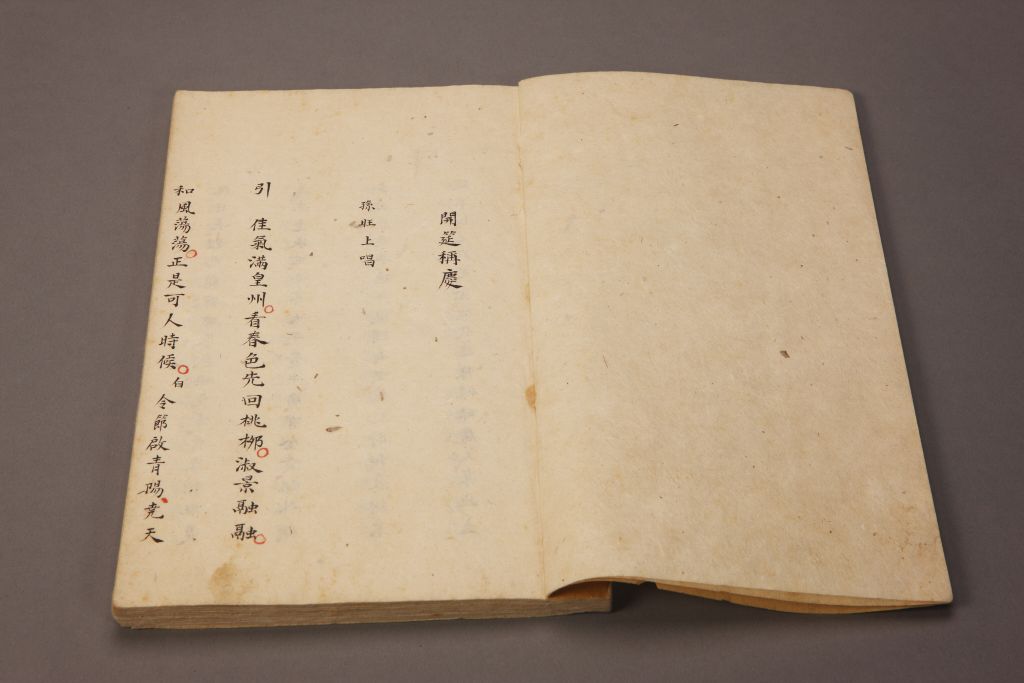 開筵稱慶
孫旺上唱
引 佳氣滿皇州。看春色先回桃柳。淑景融融。
和風蕩蕩。正是可人時候。白 令節啟青陽、堯天